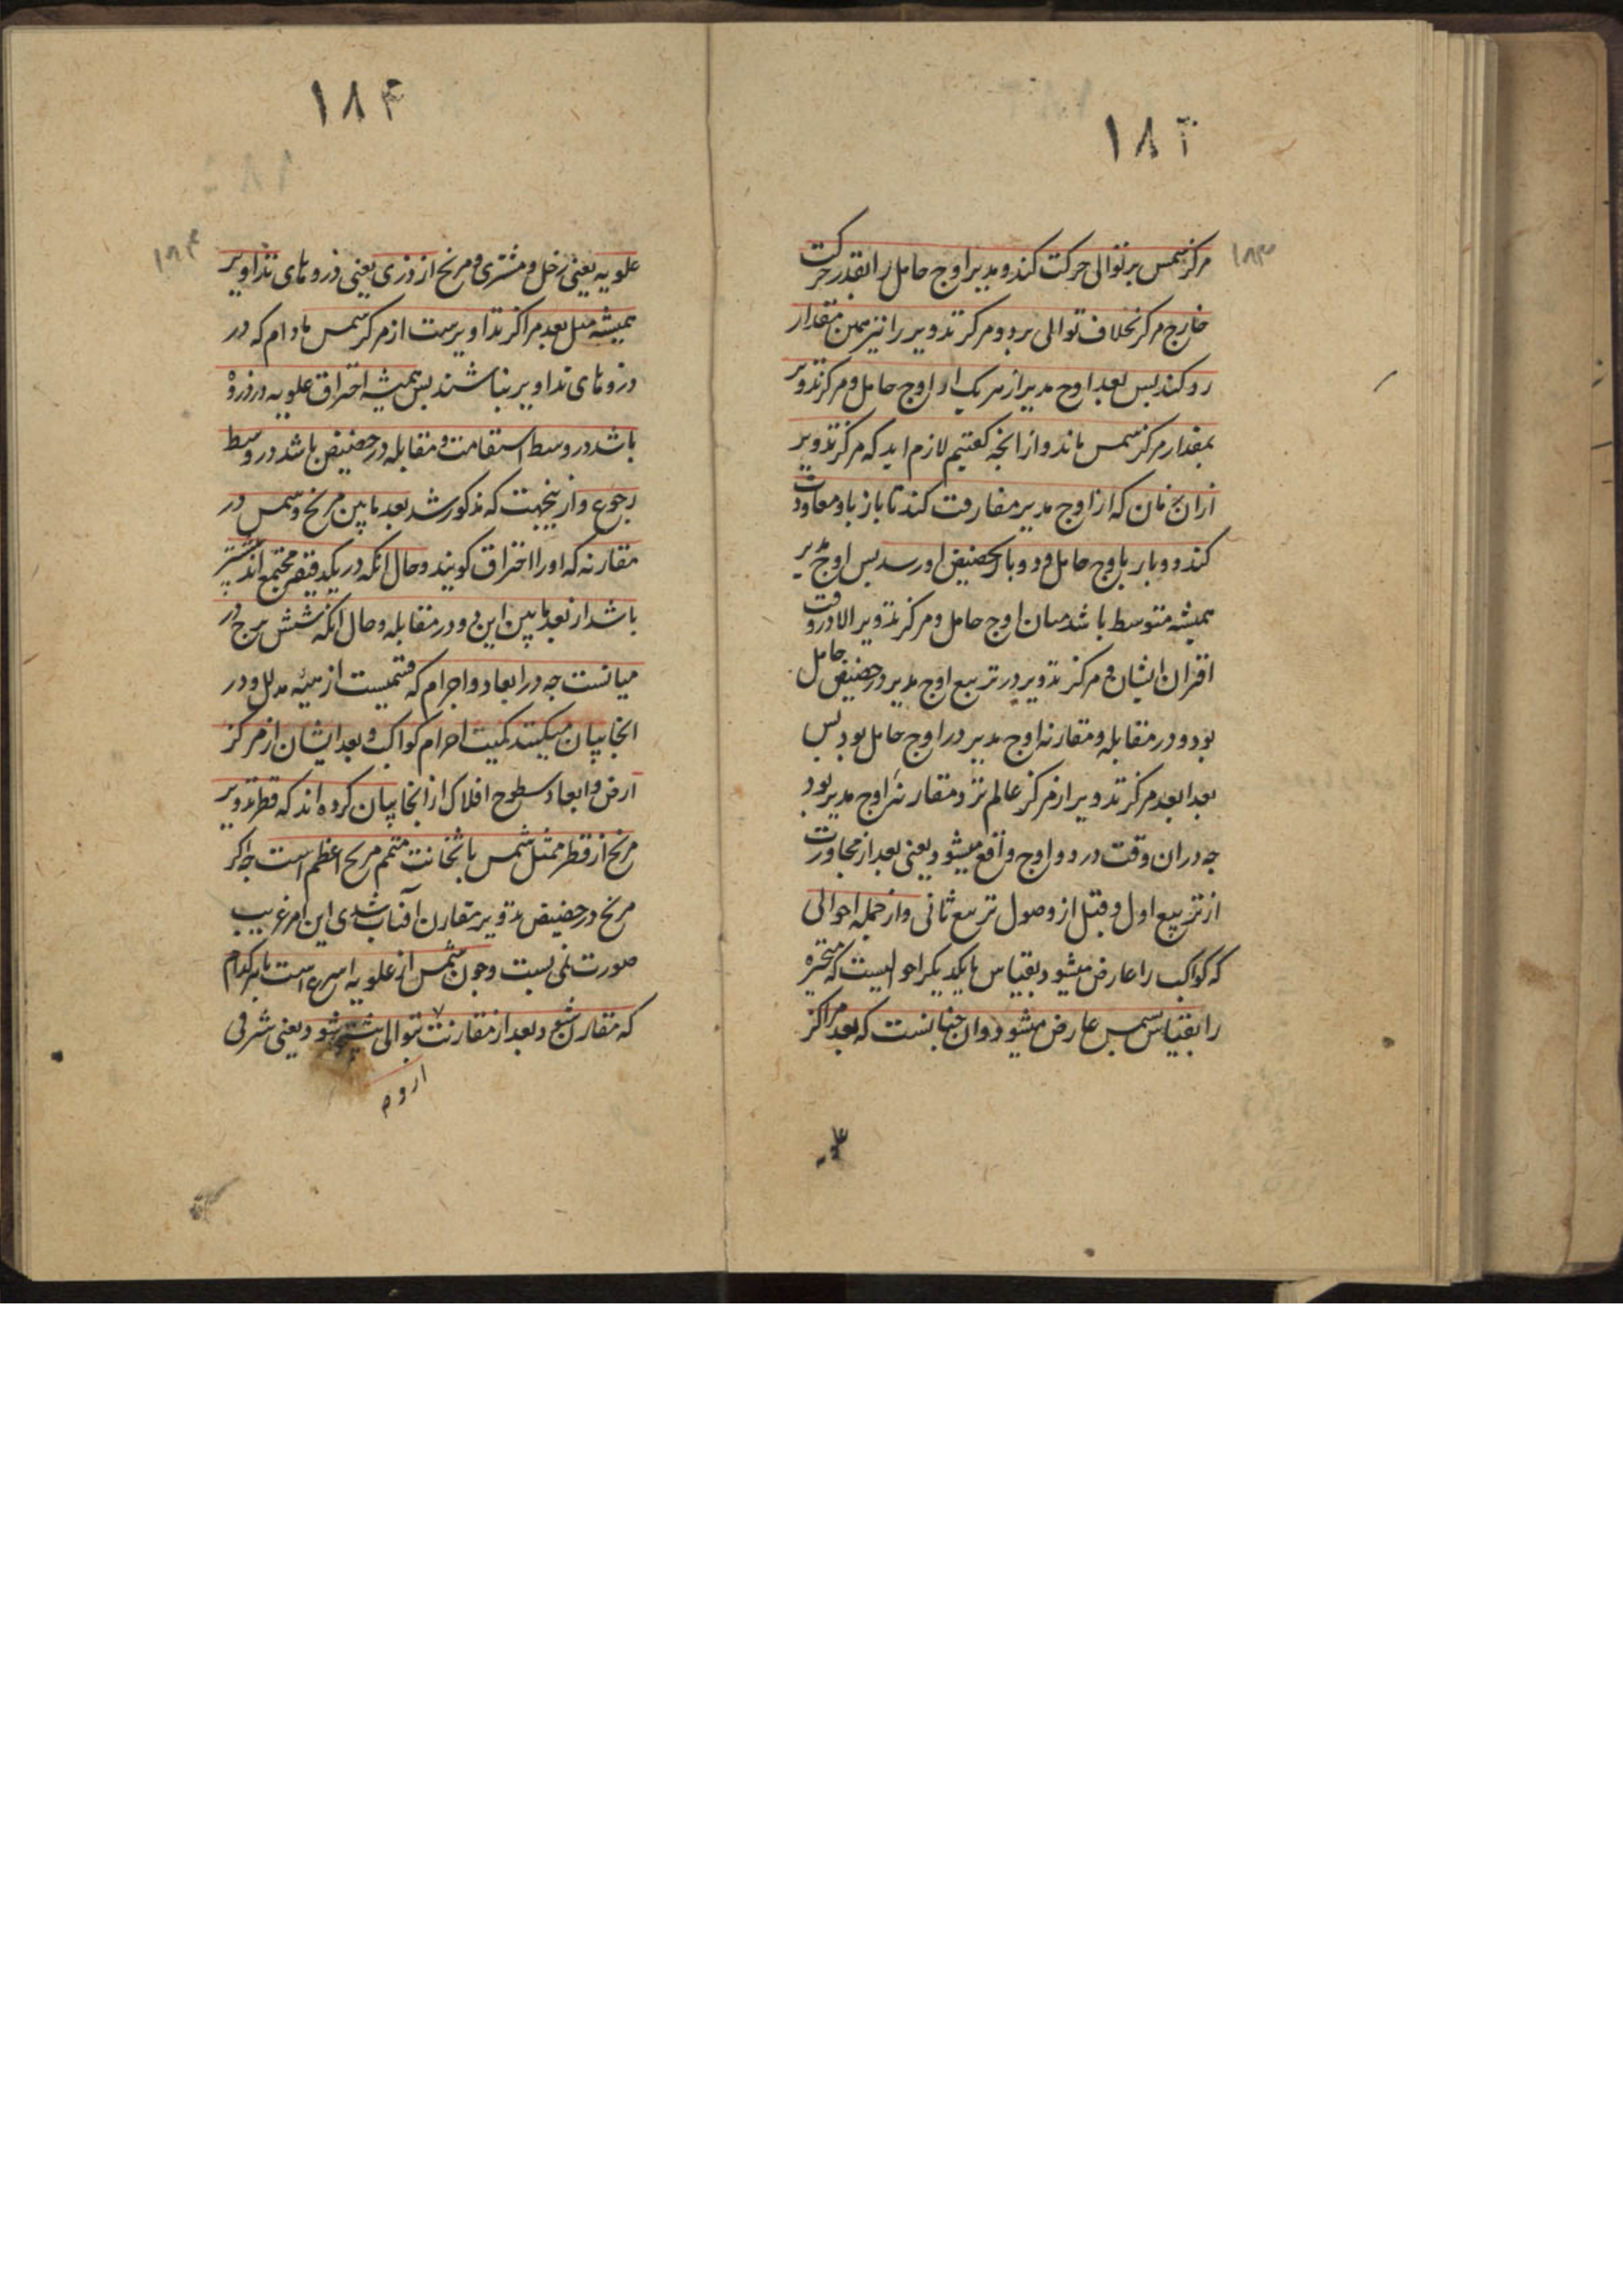 ۱۸۳
۱۸۳
مرکز شمس بر توالی حرکت کند و مدیر اوج حامل را بقدر حرکت
خارج مرکز بخلاف توالی برد و مرکز تدویر را نیز بهمین مقدار
رو کند پس بعد اوج مدیر از هر یک از اوج حامل و مرکز تدویر
بمقدار مرکز شمس ماند و از انچه کفتیم لازم اید که مرکز تدویر
از ان زمان که از اوج مدیر مفارقت کند تا باز باو معاودت
کند دو بار باوج حامل و دو بار بحضیض او رسد پس اوج مدیر
همیشه متوسط باشد میان اوج حامل و مرکز تدویر الا در وقت
اقتران ایشان و مرکز تدویر در تربیع اوج مدیر در حضیض حامل
بود و در مقابله و مقارنه اوج مدیر در اوج حامل بود پس
بعد ابعد مرکز تدویر از مرکز عالم نزد مقارنهٔ اوج مدیر بود
چه در ان وقت در دو اوج واقع میشود یعنی بعد از مجاورت
از تربیع اول و قبل از وصول تربیع ثانی و از جمله احوالی
که کواکب را عارض میشود بقیاس با یکدیکر احوالیست که متحیره
را بقیاس شمس عارض میشود و ان چنانست که بعد مراکز
۱۸۴
۱۸۴
علویه یعنی زحل و مشتری و مریخ از ذری یعنی ذروهای تداویر
همیشه مثل بعد مراکز تداویرست از مرکز شمس مادام که در
ذروهای تداویر بباشند پس همیشه احتراق علویه در ذروهٔ
باشد در وسط استقامت و مقابله در حضیض باشد در وسط
رجوع و ازینجهت که مذکور شد بعد مابین مریخ و شمس در
مقارنه که اورا احتراق کویند و حال انکه در یکدقیقه مجتمع اند بیشتر
باشد از بعد مابین این دو در مقابله و حال انکه شش برج در
میانست چه در ابعاد و اجرام که قسمیست از هیئه مدلل و در
انجا بیان میکنند کمیت اجرام کواکب و بعد ایشان از مرکز
ارض و ابعاد سطوح افلاک از انجا بیان کرده اند که قطر تدویر
مریخ از قطر ممثل شمس با ثخانت متمم مریخ اعظم است چه اکر
مریخ در حضیض تدویر مقارن آفتاب شدی این امر غریب
صورت نمی بست و چون شمس از علویه اسرع است با هر کدام
که مقارن شود بعد از مقارنت بتوالی بیشتر شود یعنی شرقی
از وم